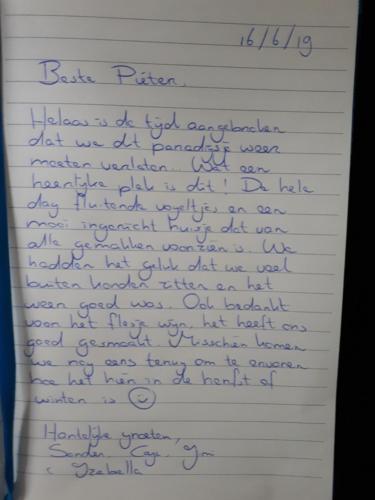 16/6/19
Beste Pieter,
Helaas is de tijd aangebroken
dat we dit paradijsje weer
moeten verlaten. Wat een
heerlijke plek is dit! De hele
dag fluitende vogeltjes en een
mooi ingericht huisje dat van
alle gemakken voorzien is. We
hadden het geluk dat we veel
buiten konden zitten en het
weer goed was. Ook bedankt
voor het flesje wijn, het heeft ons
goed gesmaakt. Misschien komen
we nog eens terug om te ervaren
hoe het hier in de herfst of
winter is ☺
Hartelijke groeten,
Sander
& Yzabella